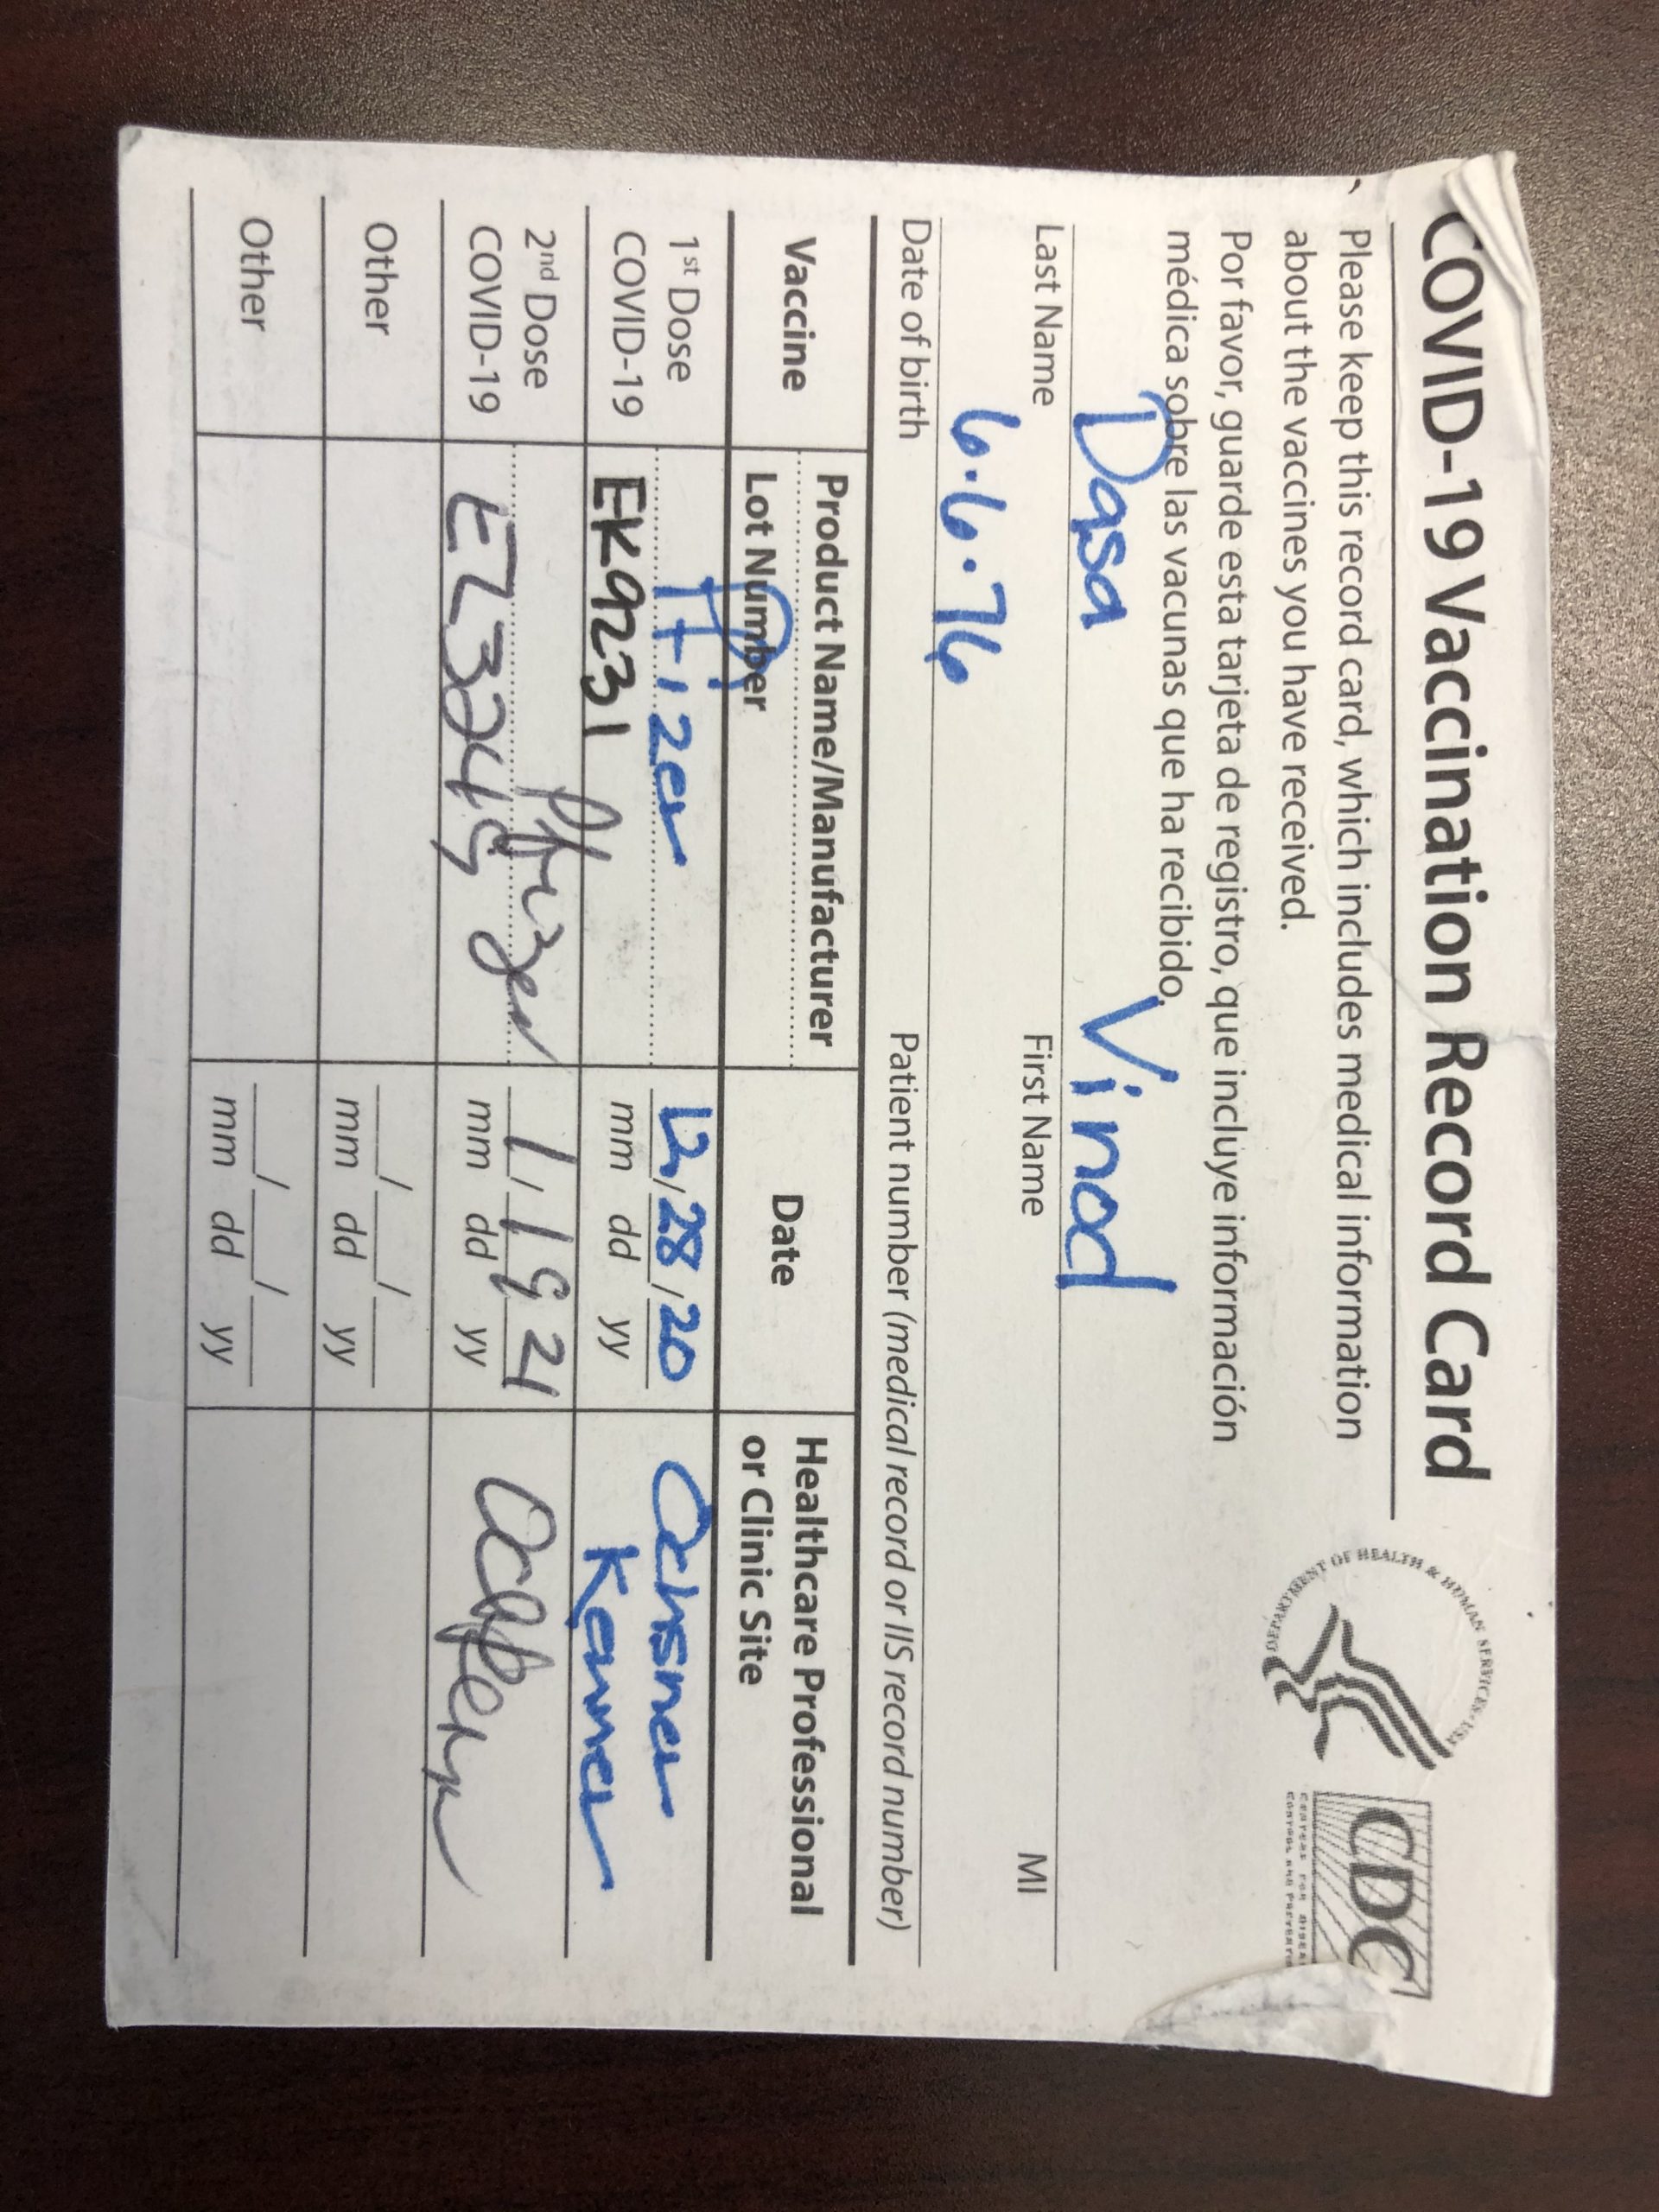 COVID-19 Vaccination Record Card
Please keep this record card, which includes medical information
about the vaccines you have received.
Por favor, guarde esta tarjeta de registro, que incluye información
médica sobre las vacunas que ha recibido.
DEPARTMENT OF HEALTH & HUMAN SERVICES · USA
CDC
CENTERS FOR DISEASE
CONTROL AND PREVENTIO
Dasa Vinod
Last Name First Name MI
6.6.76
Date of birth Patient number (medical record or IIS record number)
Vaccine Product Name/Manufacturer Date Healthcare Professional
Lot Number or Clinic Site
1st Dose Pfizer 12/28/20 Ochsner
COVID-19 EK9231 mm dd yy Kenner
2nd Dose Pfizer 1/19/21
COVID-19 mm dd yy
Other __/__/__
mm dd yy
Other __/__/__
mm dd yy